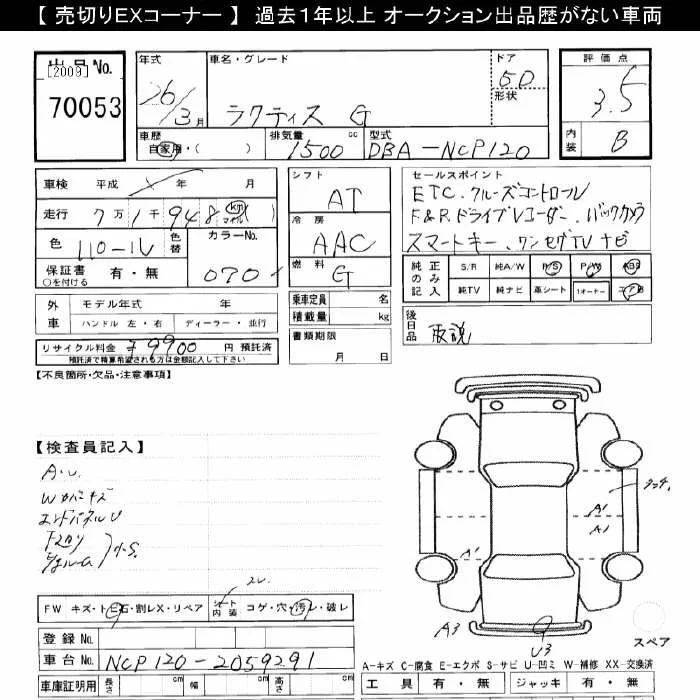 【 売切りEXコーナー 】 過去1年以上 オークション出品歴がない車両
出品 No.
[2009]
70053
年式 26/3月
車名・グレード ラクティス G
ドア 5D
形状
評価点 3.5
内装 B
車歴 自家用・( )
排気量 1500 cc
型式 DBA-NCP120
車検 平成 年 月
走行 7万1千948 km マイル ( )
色 色替 カラーNo. 070
保証書 有・無
○を付ける
シフト AT
冷房 AAC
燃料 G
乗車定員 名
積載量 kg
書類期限
月 日
セールスポイント
ETC. クルーズコントロール
F&R. ドライブレコーダー. バックカメラ
スマートキー、ワンセグTVナビ
純正のみ記入 S/R 純A/W P/S P/W ABS
純TV 純ナビ 革シート 1オーナー エアB
後日品 取説
外車 モデル年式 年
ハンドル 左・右 ディーラー・並行
リサイクル料金 ¥9900 円 預託済
預託済で精算希望される方は金額記入して下さい
【不良箇所・欠品・注意事項】
【検査員記入】
A・U.
エンドパネルU
FW キズ・トビ石・割レX・リペア シート内装 コゲ・穴・汚レ・破レ
登録 No.
車台 No. NCP120-2059291
車庫証明用 長さ cm 幅 cm 高さ cm
A1
A1
A1
A3
U3
スペア
A-キズ C-腐食 E-エクボ S-サビ U-凹ミ W-補修 XX-交換済
工具 有・無 ジャッキ 有・無